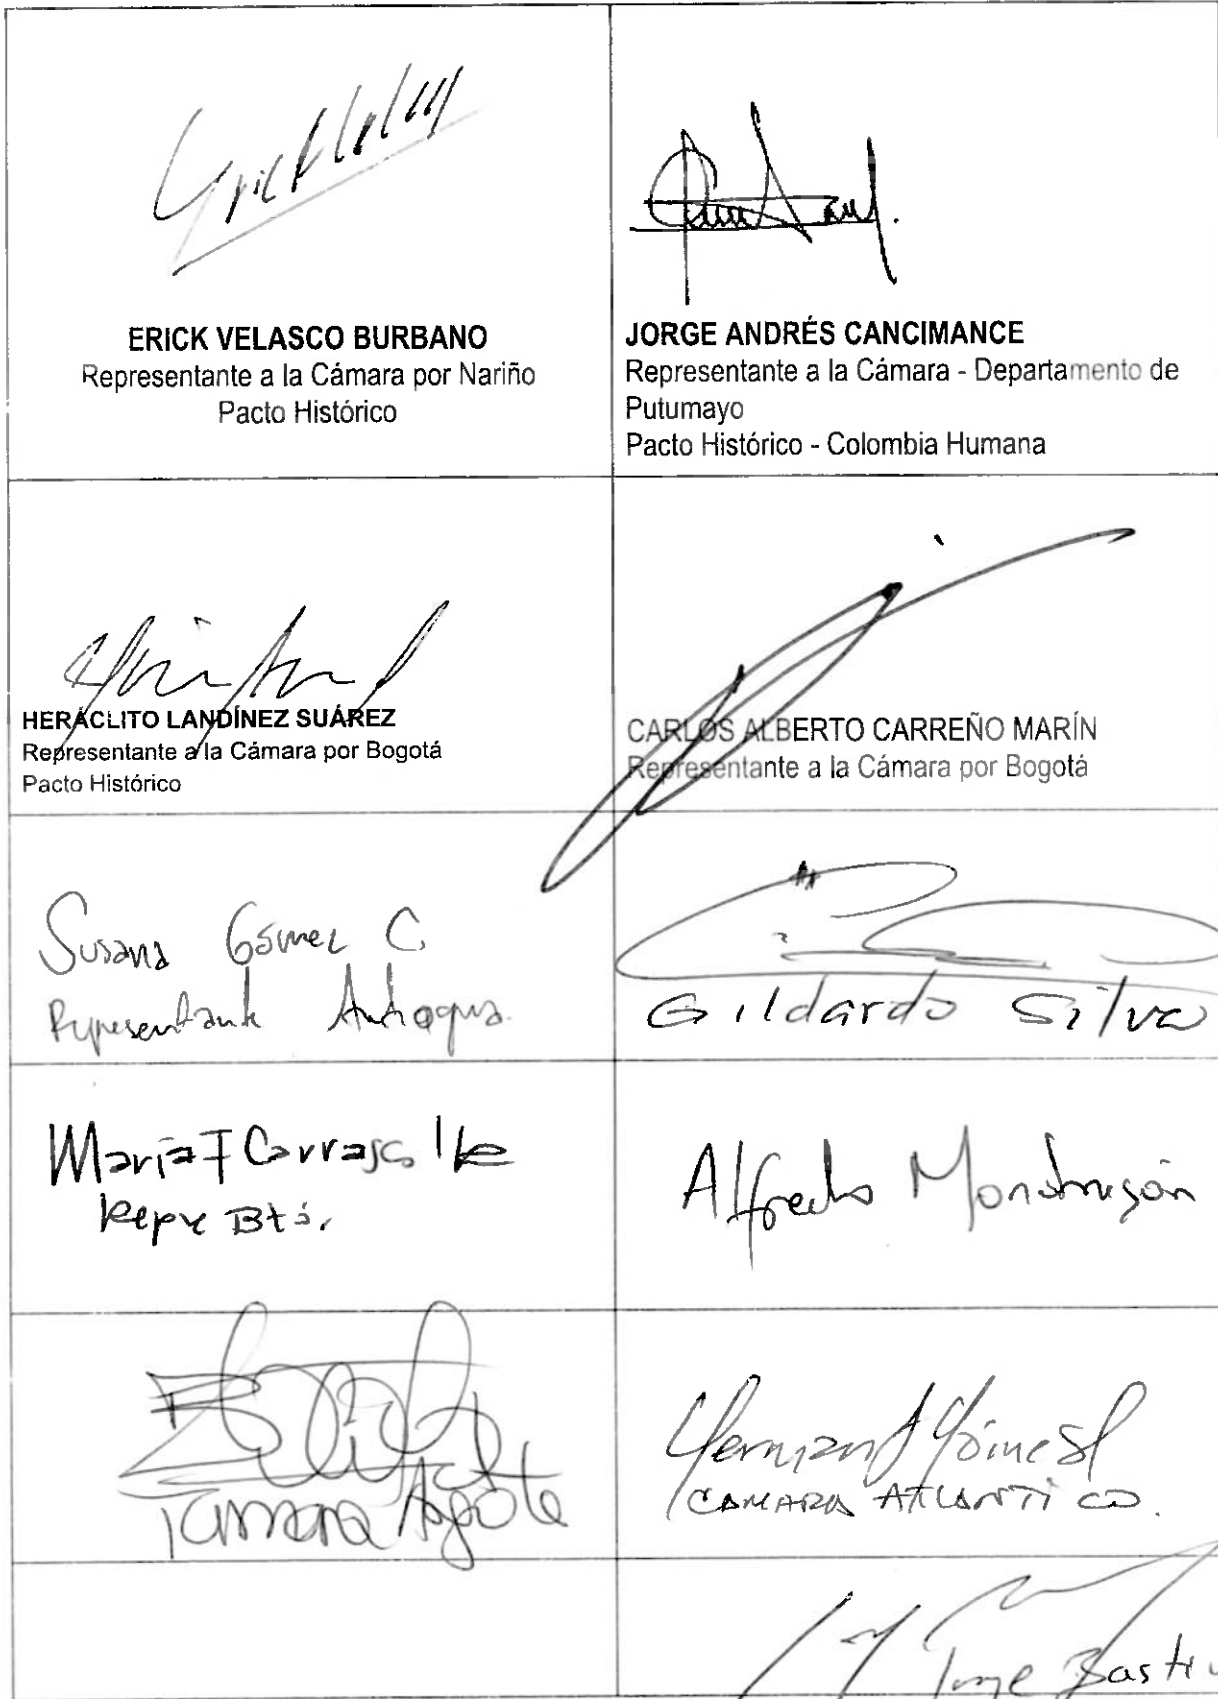 ERICK VELASCO BURBANO
Representante a la Cámara por Nariño
Pacto Histórico
JORGE ANDRÉS CANCIMANCE
Representante a la Cámara - Departamento de
Putumayo
Pacto Histórico - Colombia Humana
HERÁCLITO LANDÍNEZ SUÁREZ
Representante a la Cámara por Bogotá
Pacto Histórico
CARLOS ALBERTO CARREÑO MARÍN
Representante a la Cámara por Bogotá
Susana Gómez C.
Representante Antioquia.
Gildardo Silva
María F Carrasc
Repre Btá.
Alfredo Mondragón
Tamara Argote
CAMARA ATLANTICO.
Jorge Bast